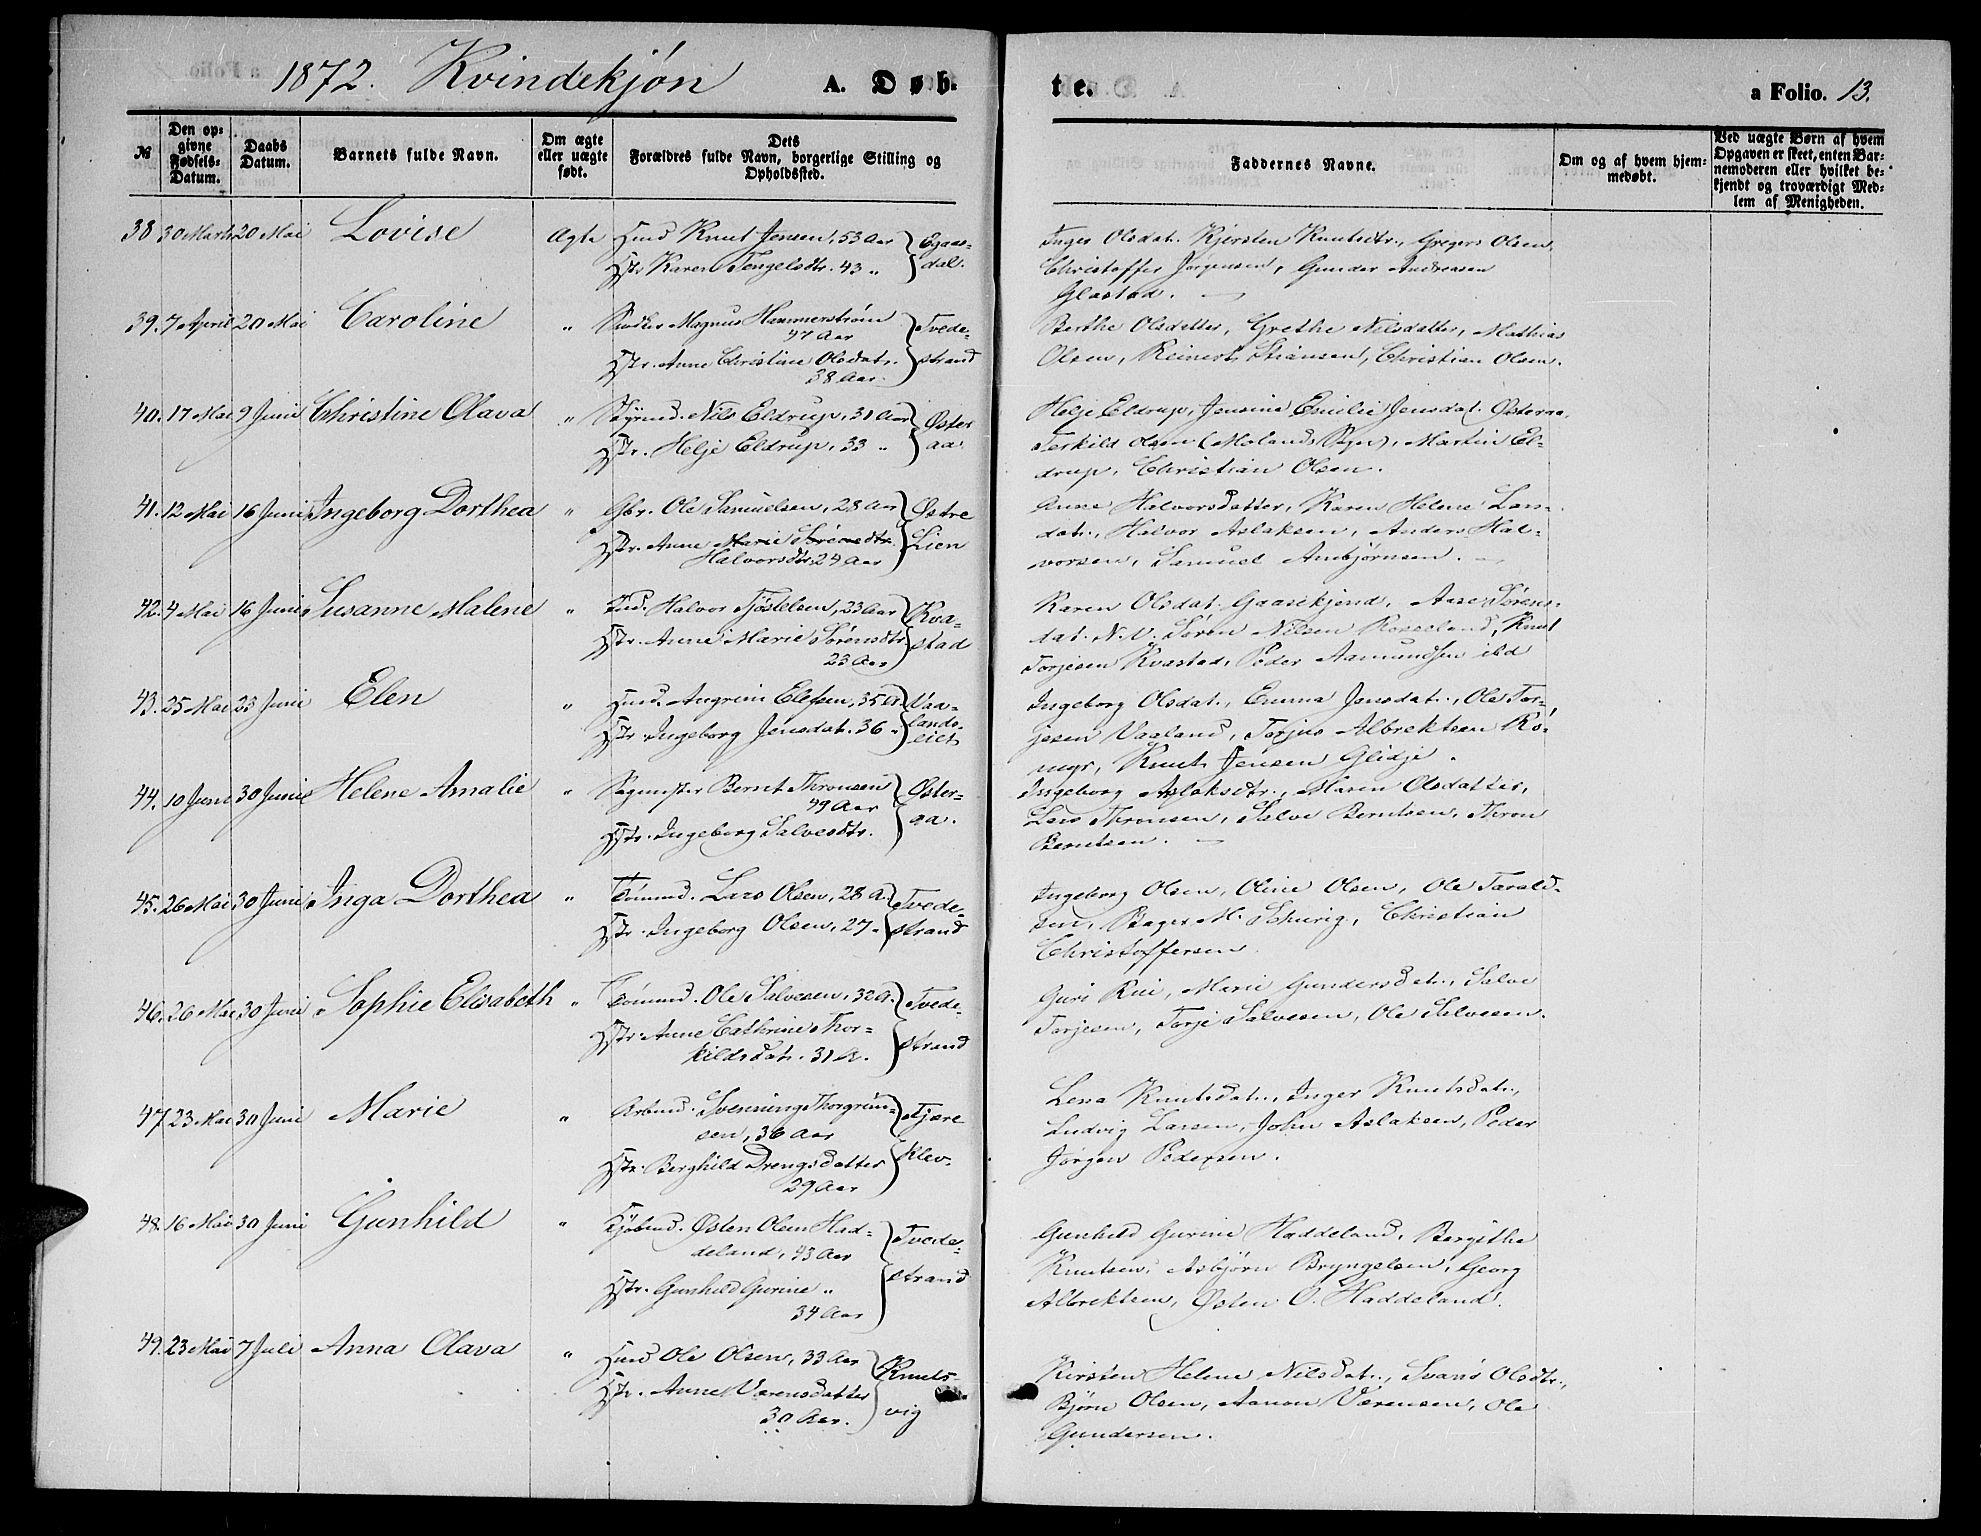 1872. Kvindekjøn A. Døb-
te. a Folio. 13.
№ Den op-
givne
Fødsels-
Datum. Daabs
Datum. Barnets fulde Navn. Om ægte
eller uægte
født. Dets
Forældres fulde Navn, borgerlige Stilling og
Opholdssted.
Faddernes Navne. Om og af hvem hjem-
medøbt. Ved uægte Børn af hvem
Opgaven er skeet, enten Bar-
nemoderen eller hvilket be-
kjendt og troværdigt Med-
lem af Menigheden.
38 30 Marts 20 Mai Lovise Ægte Hmd Knut Jensen, 53 Aar Egaas-
Hstr. Karen Tengelsdtr. 43 " dal.
Inger Olsdat. Kjersten Knutsdtr., Gregers Olsen,
Christoffer Jørgensen, Gunder Andreasen
Glastad.
39. 7 April 20 Mai Caroline " Magnus Hammerstrøm Tvede-
47 Aar
Hstr. Anne Christine Olsdatr. strand
38 Aar.
Berthe Olsdatter, Grethe Nilsdatter, Mathias
Olsen, Reinert Christian Olsen.
40. 17 Mai 9 Juni Christine Olava " Nils Eldrup, 31 Aar Øster
Hstr. Helje Eldrup, 33 " aa.
Helje Eldrup, Jensine Emilie Jensdat. Østeraa,
Terkild Olsen (Molands Sogn), Martin El-
drup, Christian Olsen.
41. 12 Mai 16 Juni Ingeborg Dorthea " Gbr. Ole Samuelsen, 28 Aar Østre
Hstr. Anne Marie Sørensdtr. Lien
Halvorsdtr. 24 Aar
Anne Halvorsdatter, Karen Helene Lars-
datr., Halvor Aslaksen, Anders Hal-
vorsen, Samuel Ambjørnsen.
42. 4 Mai 16 Juni Susanne Malene " Ind. Halvor Tjøstelsen, 23 Aar Kva-
Hstr. Anne Marie Sørensdtr stad
23 Aar
Karen Olsdat. Gaasekjend, Aase Sørens-
dat. N.N. Søren Nilsen Roseland, Knut
Torjesen Kvastad, Peder Aamundsen ibd
43. 25 Mai 23 Juni Elen " Hmd. Angrim Elefsen, 35 A. Vaa-
Hstr. Ingeborg Jensdat. 36 " lands-
eiet
Ingeborg Olsdat., Emma Jensdat., Ole Tor-
jesen Vaaland, Torjus Albrektsen Ro-
myr, Knut Jensen Glidje.
44. 10 Juni 30 Juni Helene Amalie " Sagmster Bernt Thronsen Øster-
49 Aar
Hstr. Ingeborg Salvesdtr. aa.
Ingeborg Aslaksdtr., Maren Olsdatter,
Lars Thronsen, Salve Berntsen, Thron
Berntsen.
45. 26 Mai 30 Juni Inga Dorthea " Tømmd. Lars Olsen, 28 A. Tvede-
Hstr. Ingeborg Olsen, 27 " strand
Ingeborg Olsen, Oline Olsen, Ole Tarald-
sen, Bager M. Schurig, Christian
Christoffersen
46. 26 Mai 30 Juni Sophie Elisabeth " Tømmd. Ole Salvesen, 32 A. Tvede-
Hstr. Anne Cathrine Thor-
kildsdatr. 31 A. strand
Guri Rui, Marie Gundersdatr., Salve
Torjesen, Torje Salvesen, Ole Salvesen.
47. 23 Mai 30 Juni Marie " Arbmd. Svenning Thorgrim- Tjære
sen, 36 Aar
Hstr. Berghild Drengsdatter Klev-
29 Aar
Lena Knutsdat., Inger Knutsdat.,
Ludvig Larsen, John Aslaksen, Peder
Jørgen Pedersen.
48. 16 Mai 30 Juni Gunhild " Kjøbmd. Østen Olsen Had- Tvede-
deland, 43 Aar
Hstr. Gunhild Gurine " strand
34 Aar
Gunhild Gurine Haddeland, Bergithe
Knutsen, Asbjørn Bryngelsen, Georg
Albrektsen, Østen O. Haddeland.
49. 23 Mai 7 Juli Anna Olava " Hmd Ole Olsen, 33 Aar Knuts-
Hstr. Anne Værensdatter vig
30 Aar.
Kirsten Helene Nilsdat., Svanø Olsdtr.,
Bjørn Olsen, Aanon Værensen, Ole
Gundersen.